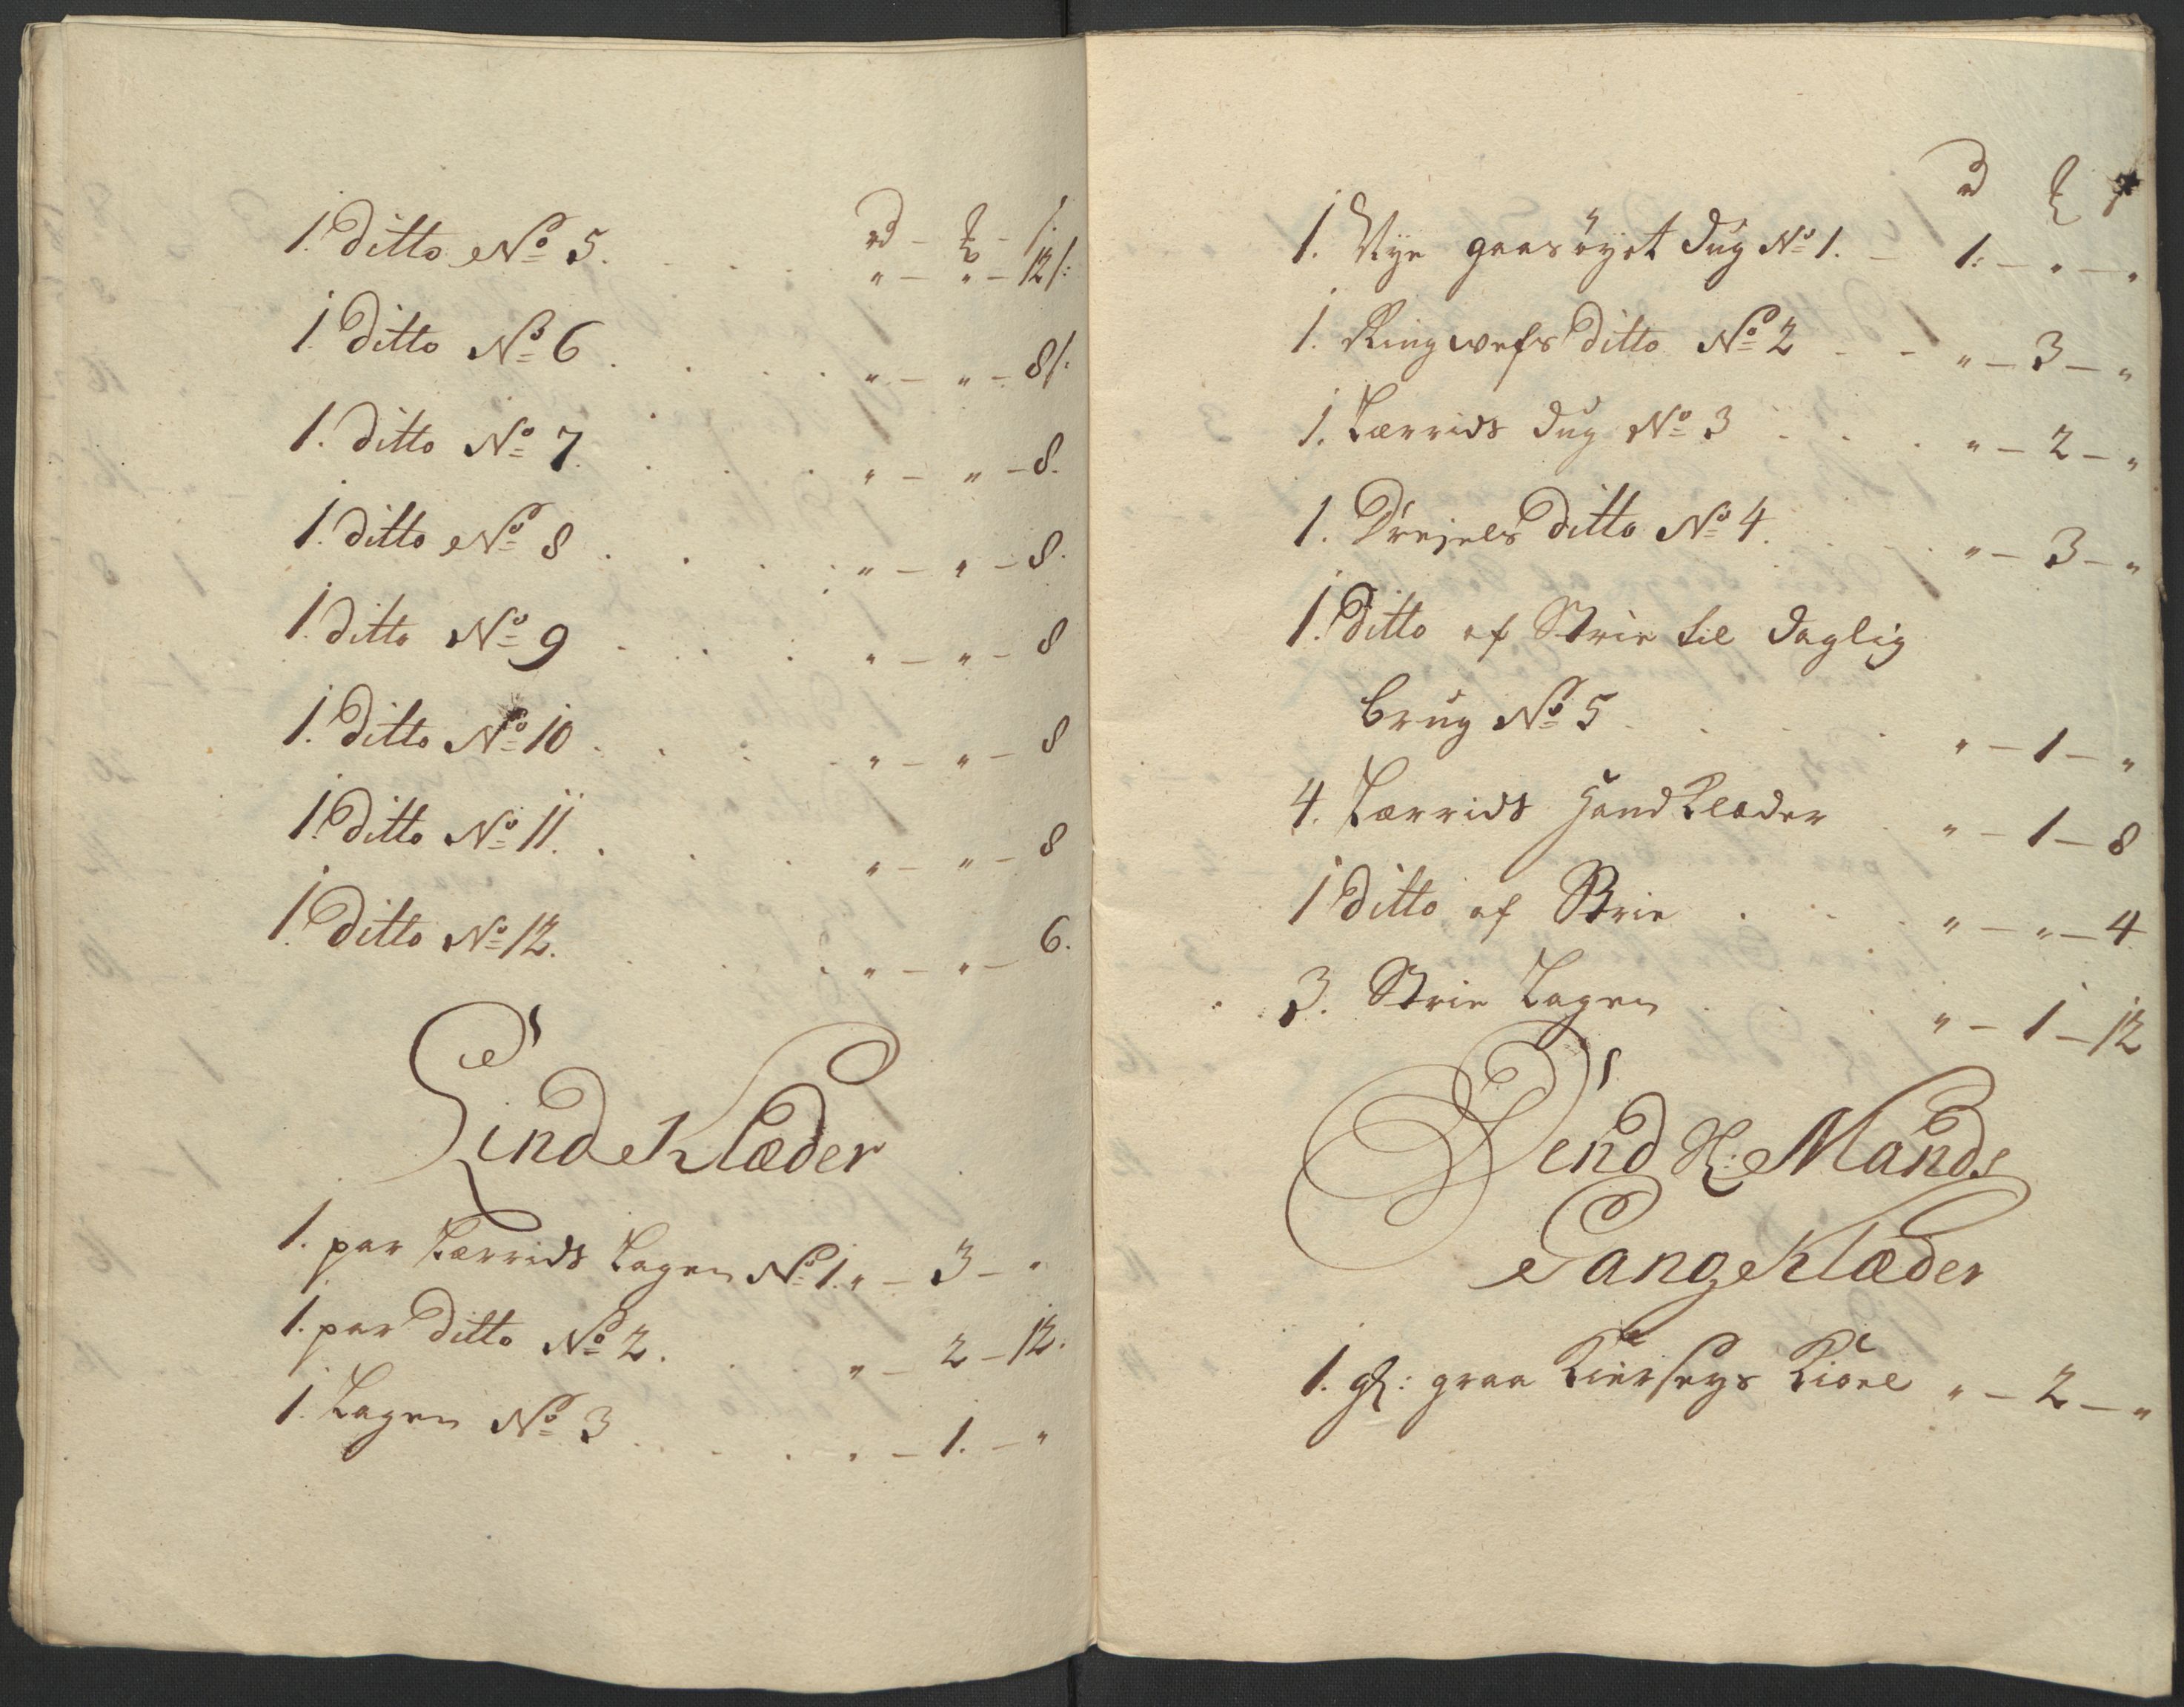 rd - ₰ - /
1. Ditto No 5. „ - „ - 12/:
1. Ditto No 6. „ - „ - 8/.
1. ditto No 7. „ - „ - 8.
1. ditto No 8. „ - „ - 8.
1. ditto No 9. „ - „ - 8
1. Ditto No 10. „ - „ - 8
1. Ditto No 11. „ - „ - 8
1. Ditto No 12. „ - „ - 6.
Lind Klæder
1. par Lærrids Lagen No 1. „ - 3 - „
1. par Ditto No 2. „ - 2 - 12.
1. Lagen No 3 „ - 1. - „
rd
1. Nye gaasöyet dug No 1. - 1: - „ - „
1. Ringwefs Ditto No 2 - - „ - 3 - „
1. Lærrids dug No 3 „ - 2 - „
1. Drejels Ditto No 4. „ - 3 - „
1. Ditto af Strie til daglig
brug No 5 „ - 1 - „
4. Lærrids Handklæder „ - 1 - 8
1 Ditto af Strie „ - „ - 4
3. Strie Lagen „ - 1 - 12
Dend Sl: Mands
Gang Klæder
1. gl: graa Kierseys Kioel „ - 2 - „